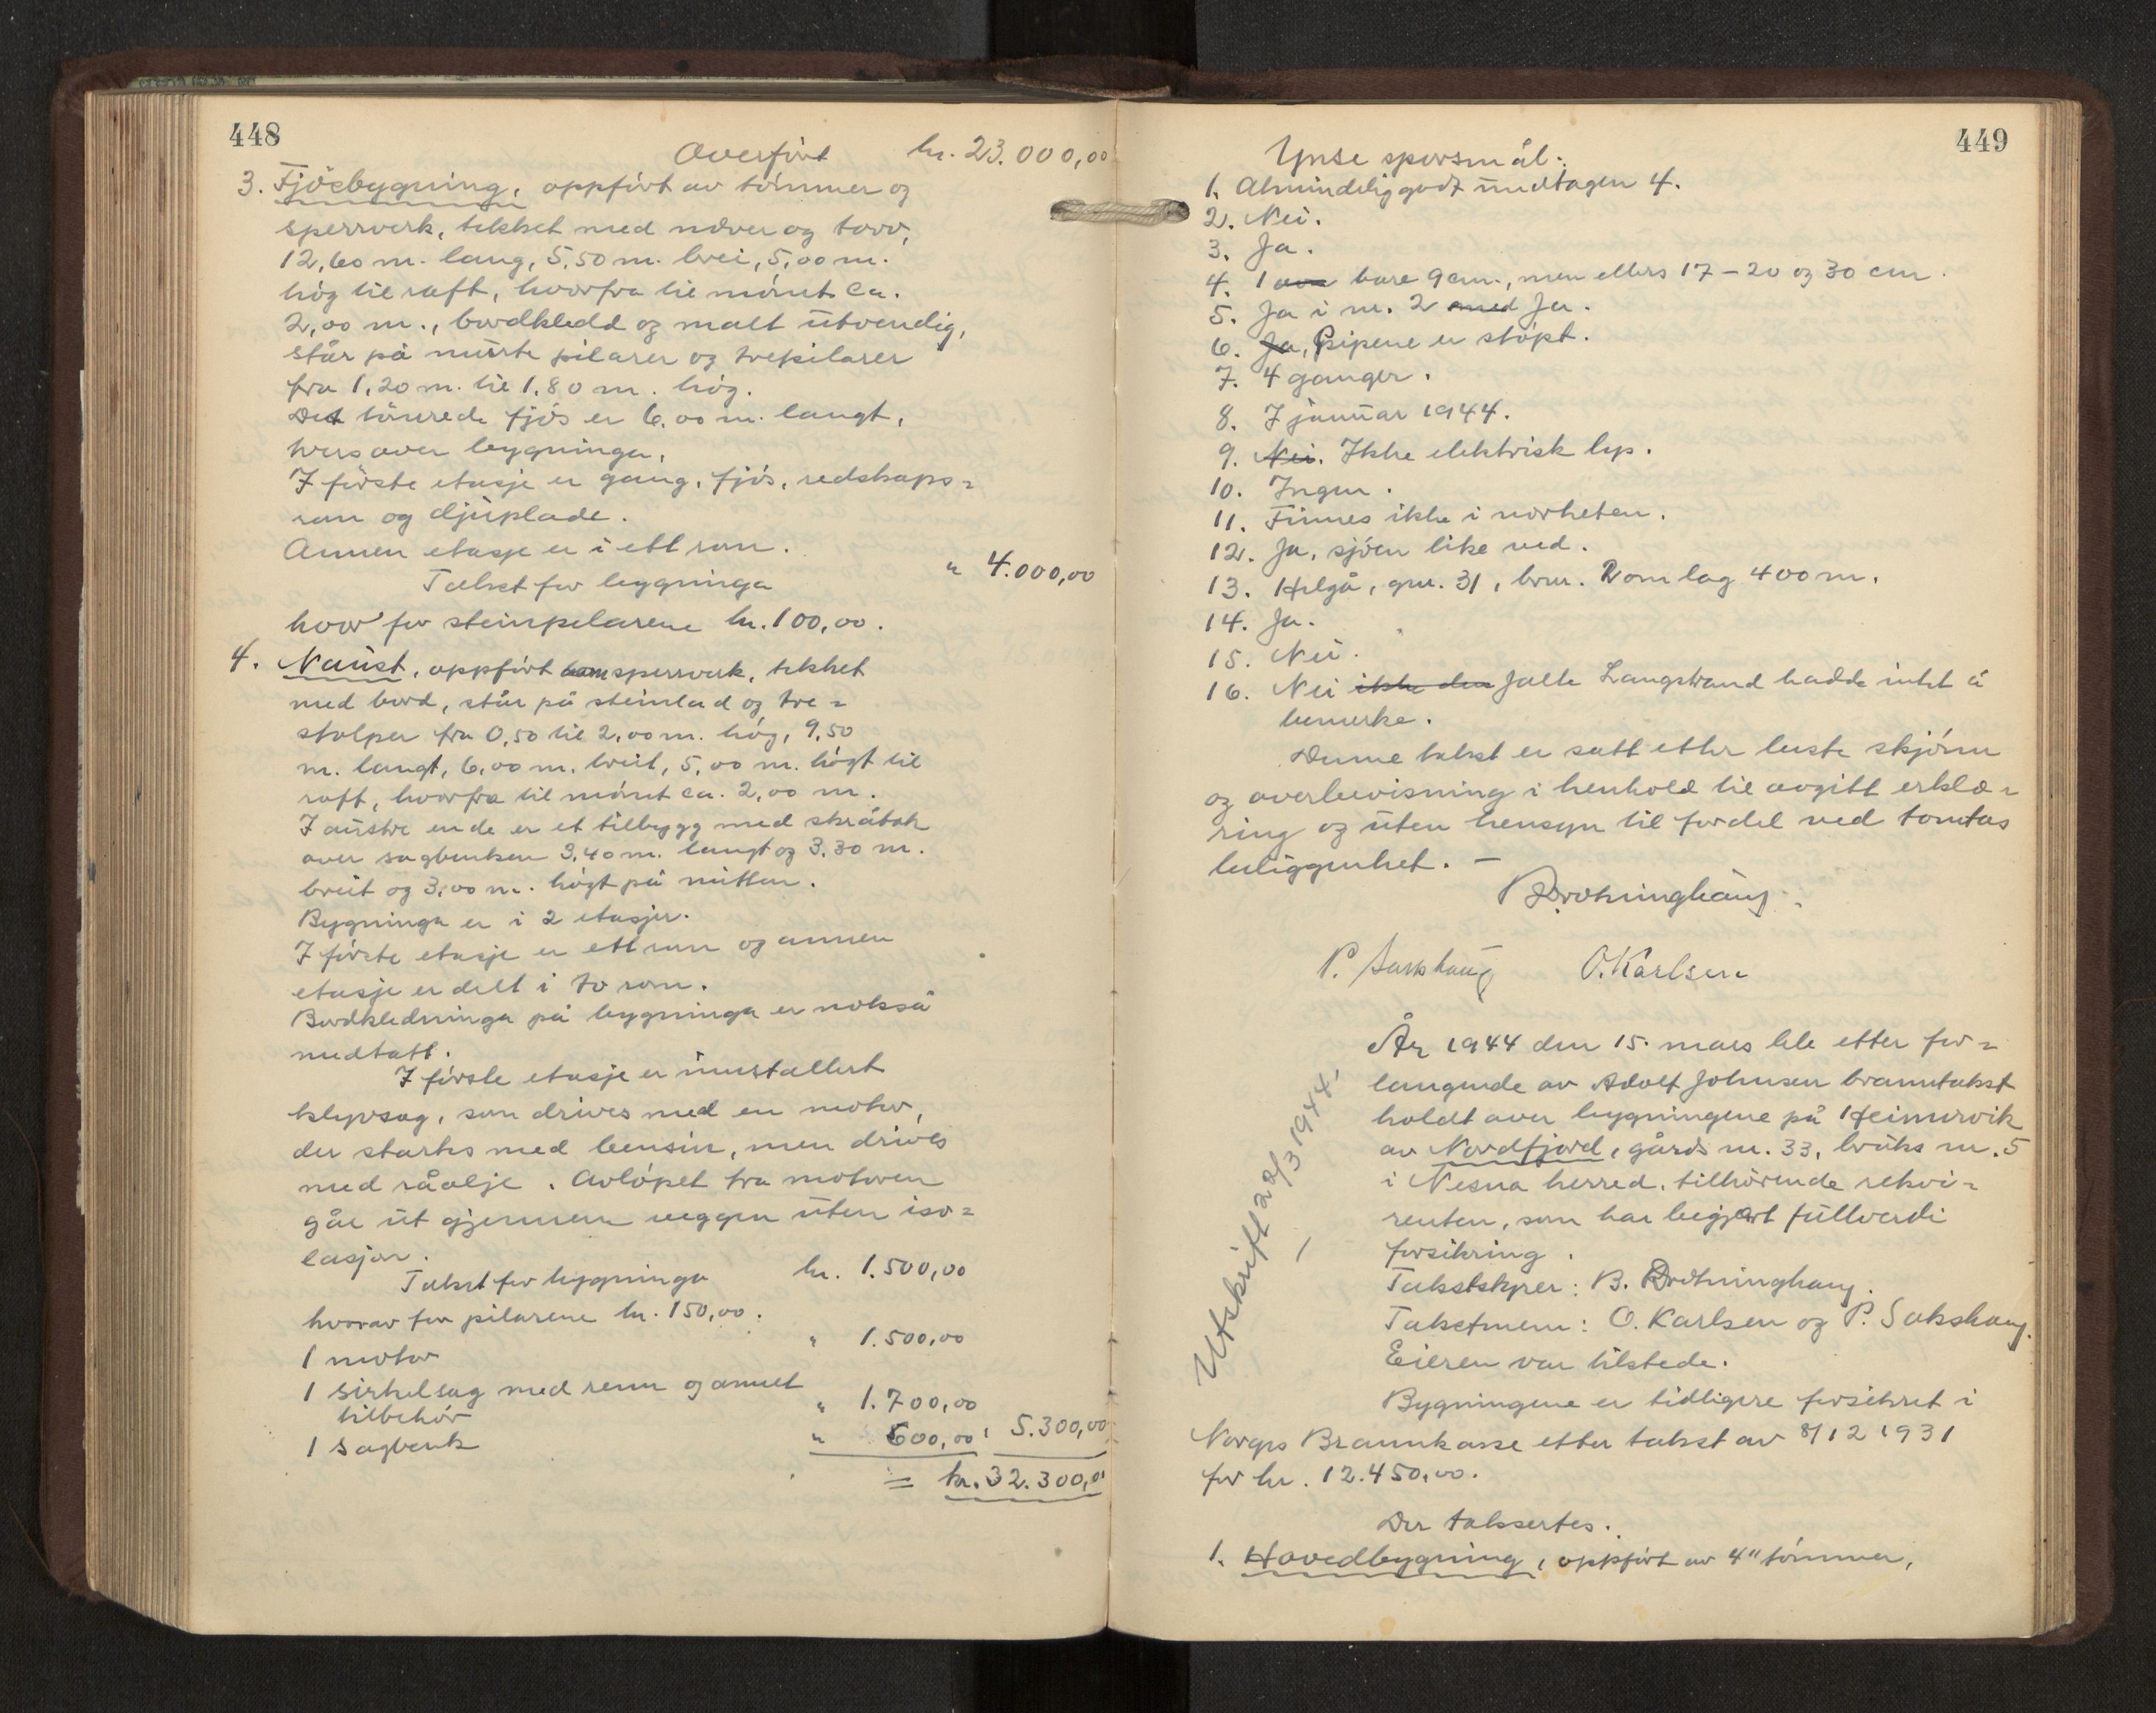 448
Overført kr. 23.000,00
3. Fjøsbygning, oppført av tømmer og
sperrverk, tekket med never og torv,
12,60 m. lang, 5,50 m. brei, 5,00 m.
høg til raft, hvorfra til mønet ca.
2,00 m., bordkledd og malt utvendig,
står på murte pilarer og trepilarer
fra 1,20 m. til 1,80 m. høg.
Det tømrede fjøs er 6,00 m. langt,
tvers over bygninga.
I første etasje er gang, fjøs, redskaps-
rom og djuplade.
Annen etasje er i ett rom.
Takst for bygninga " 4.000,00
hvorav for steinpelarene kr. 100,00.
4. Naust, oppført sperrverk, tekket
med bord, står på steinlad og tre-
stolper fra 0,50 til 2,00 m. høg, 9,50
m. langt, 6,00 m. breit, 5,00 m. høgt til
raft, hvorfra til mønet ca. 2,00 m.
I austre ende er et tilbygg med skråtak
over sagbenken 3,40 m. langt og 3,30 m.
breit og 3,00 m. høgt på mitten.
Bygninga er i 2 etasjer.
I første etasje er ett rom og annen
etasje er delt i to rom.
Bordkledninga på bygninga er nokså
medtatt.
I første etasje er innstallert
kløvsag, som drives med en motor,
der startes med bensin, men drives
med råolje. Avløpet fra motoren
går ut gjennem veggen uten iso-
lasjon.
Takst for bygninga kr. 1.500,00
hvorav for pilarene kr. 150,00.
1 motor " 1.500,00
1 sirkelsag med reim og annet
tilbehør " 1.700,00
1 sagbenk " 600,00 5.300,00
= kr. 32.300,00
449
Ymse spørsmål.
1. Almindelig godt undtagen 4.
2. Nei.
3. Ja.
4. 1 bare 9 cm., men ellers 17 – 20 og 30 cm.
5. Ja i nr. 2 med Ja.
6. Ja, Pipene er støpt.
7. 4 ganger.
8. 7 januar 1944.
9. Nei. Ikke elektrisk lys.
10. Ingen.
11. Finnes ikke i nærheten.
12. Ja, sjøen like ved.
13. Helgå, gnr. 31, bnr. 2 om lag 400 m.
14. Ja.
15. Nei.
16. Nei ikke den Jalle Langstrand hadde intet å
bemerke.
Denne takst er satt etter beste skjønn
og overbevisning i henhold til avgitt erklæ-
ring og uten hensyn til fordel ved tomtas
beliggenhet. –
B Drotninghaug.
P. Sakshaug O. Karlsen
Utskrift 22/3 1944.
År 1944 den 15. mars ble etter for-
langende av Adolf Johnsen branntakst
holdt over bygningene på Heimervik
av Nordfjord, gårds nr. 33, bruks nr. 5
i Nesna herred, tilhørende rekvi-
renten, som har begjært fullverdi
forsikring.
Takstskjner: B. Drotninghaug.
Takstmenn: O. Karlsen og P. Sakshaug.
Eieren var tilstede.
Bygningene er tidligere forsikret i
Norges Brannkasse etter takst av 8/12 1931
for kr. 12.450,00.
Der taksertes.
1. Hovedbygning, oppført av 4" tømmer,